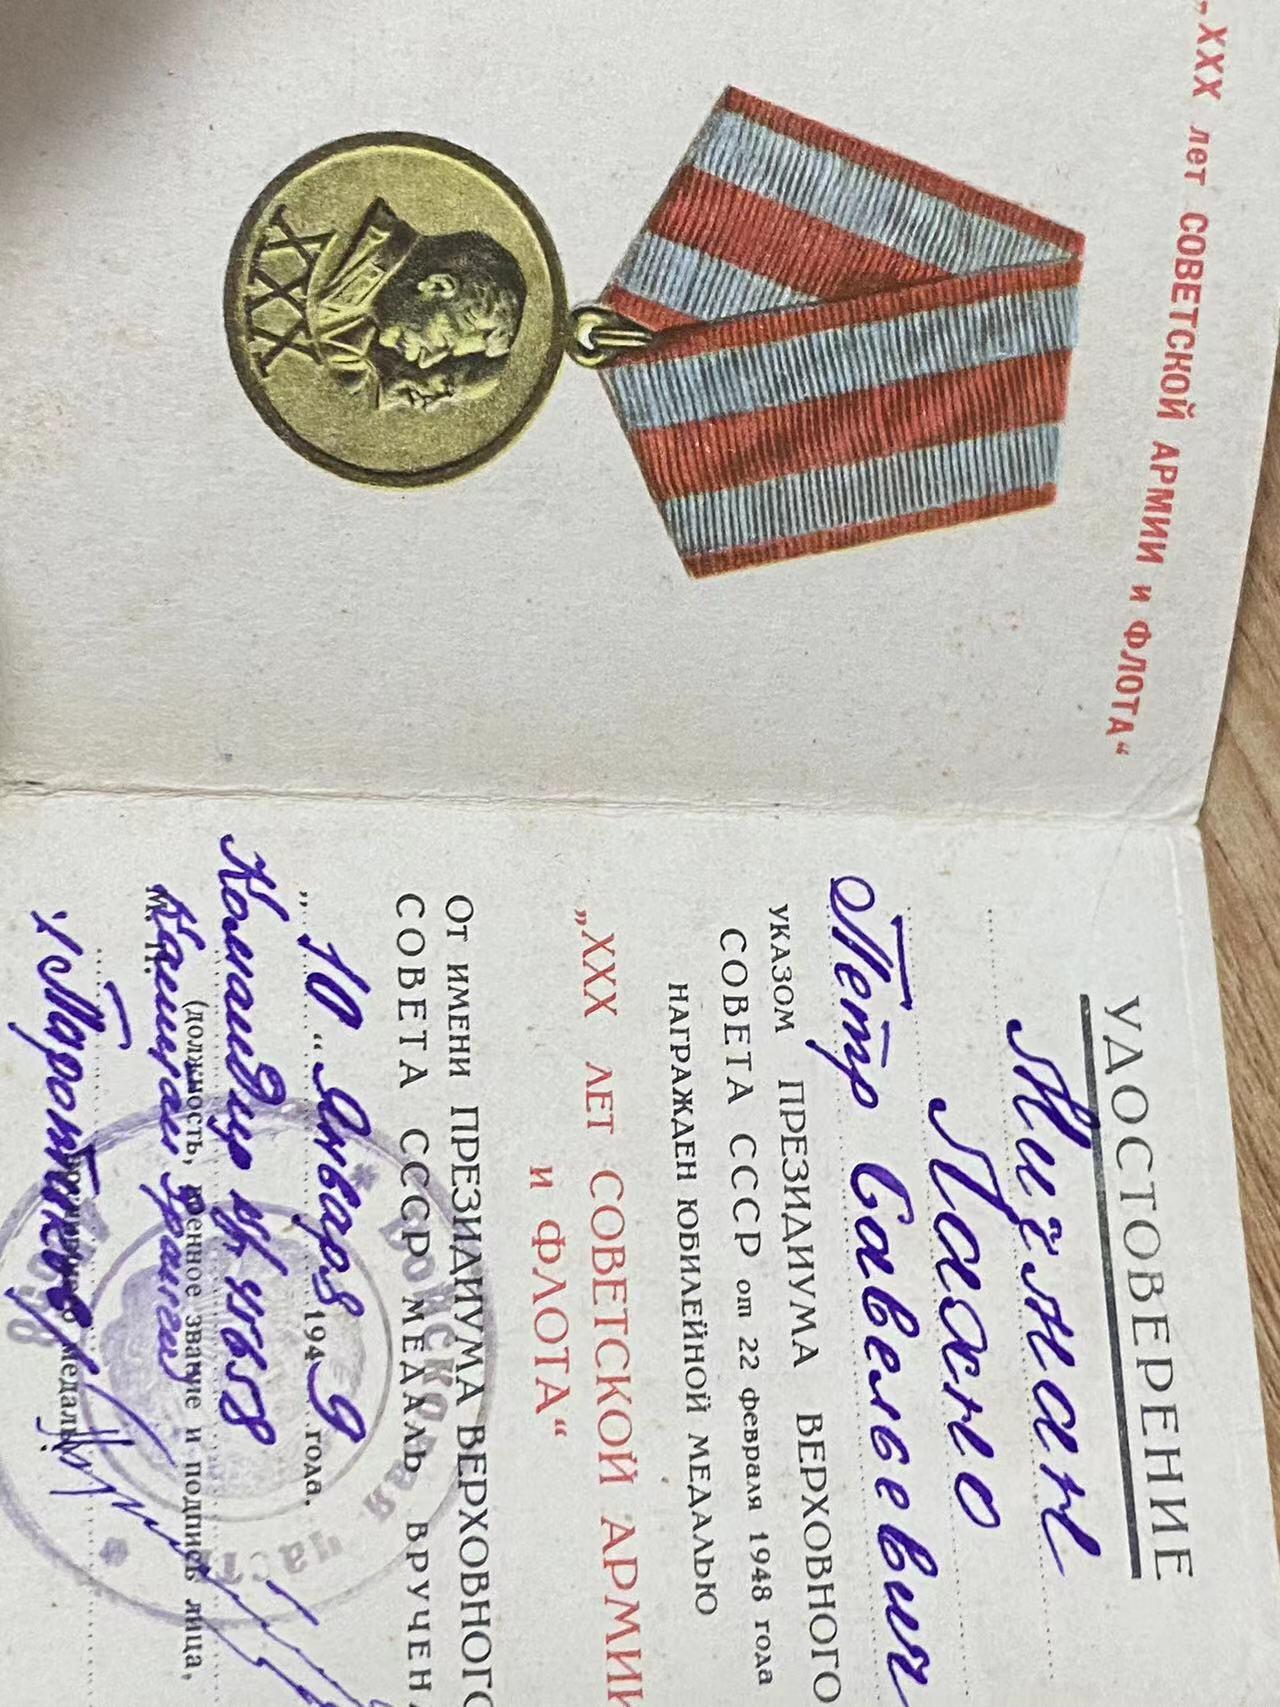 „XXX лет СОВЕТСКОЙ АРМИИ и ФЛОТА“
УДОСТОВЕРЕНИЕ
Мичман
Ласно
Петр Савельевич
УКАЗОМ ПРЕЗИДИУМА ВЕРХОВНОГО
СОВЕТА СССР от 22 февраля 1948 года
НАГРАЖДЕН ЮБИЛЕЙНОЙ МЕДАЛЬЮ
„XXX ЛЕТ СОВЕТСКОЙ АРМИИ
И ФЛОТА“
От ИМЕНИ ПРЕЗИДИУМА ВЕРХОВНОГО
СОВЕТА СССР МЕДАЛЬ ВРУЧЕНА
„10“ Января 1949 года.
Командир в/ч 45658
М. П. (должность, военное звание и подпись лица,
Капитан
медаль)